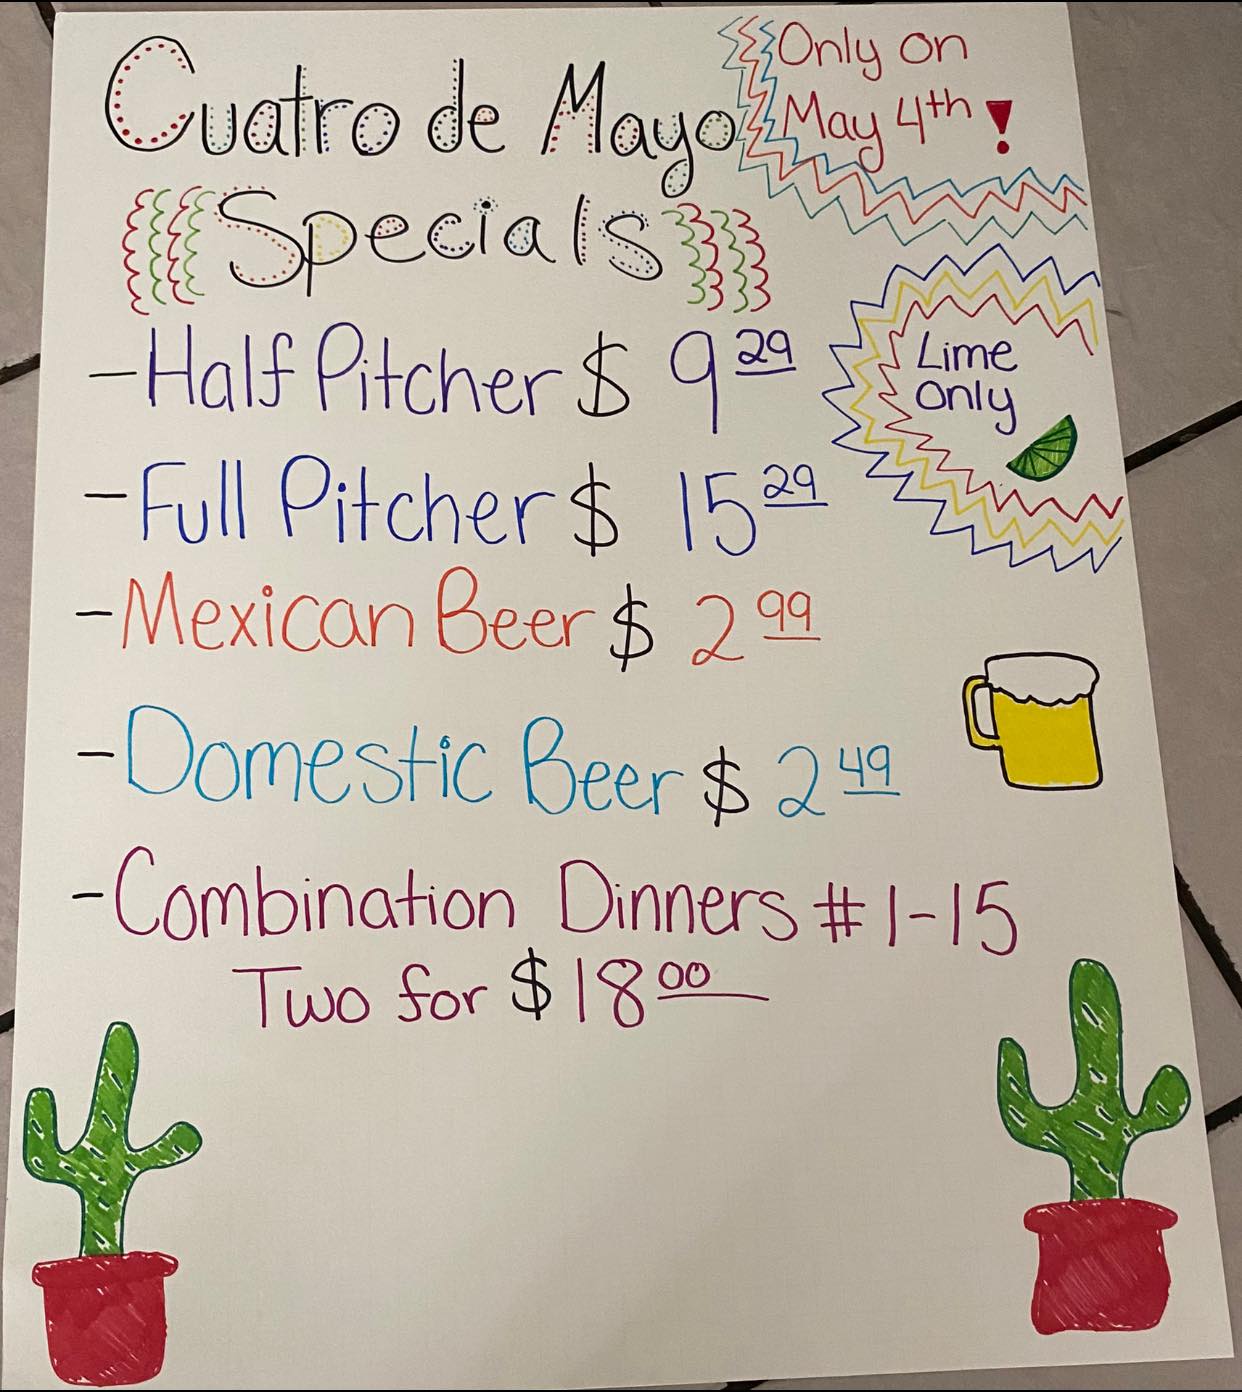 Cuatro de Mayo
Specials
Only on
May 4th!
- Half Pitcher $ 9 29
Lime
Only
- Full Pitcher $ 15 29
- Mexican Beer $ 2 99
- Domestic Beer $ 2 49
- Combination Dinners # 1-15
Two for $ 18 00